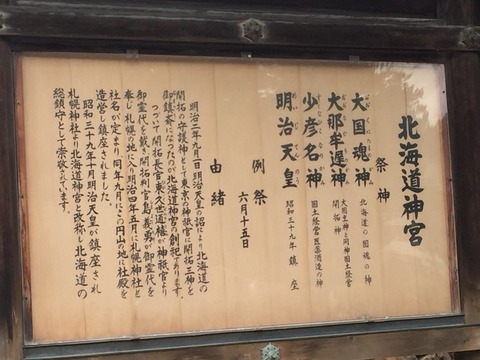 北海道神宮
祭神
大国魂神 北海道の国魂の神
大那牟遅神 大国主神と同神国土経営
開拓神
少彦名神 国土経営医薬酒造の神
明治天皇 昭和三十九年鎮座
例祭 六月十五日
由緒
明治二年九月一日明治天皇の詔により北海道の
開拓の守護神として東京の神祇官に開拓三神を
御鎮斎になったのが北海道神宮の創祀であります。
つづいて開拓長官東久世通禧が神祇官より
御霊代を戴き開拓判官島義勇が御霊代を
奉じ札幌の地に入り明治四年五月に札幌神社と
社名が定まり、同年九月にこの円山の地に社殿を
造営し鎮座されました。
昭和三十九年十月明治天皇が鎮座され
札幌神社より北海道神宮と改称し北海道の
総鎮守として崇敬されています。